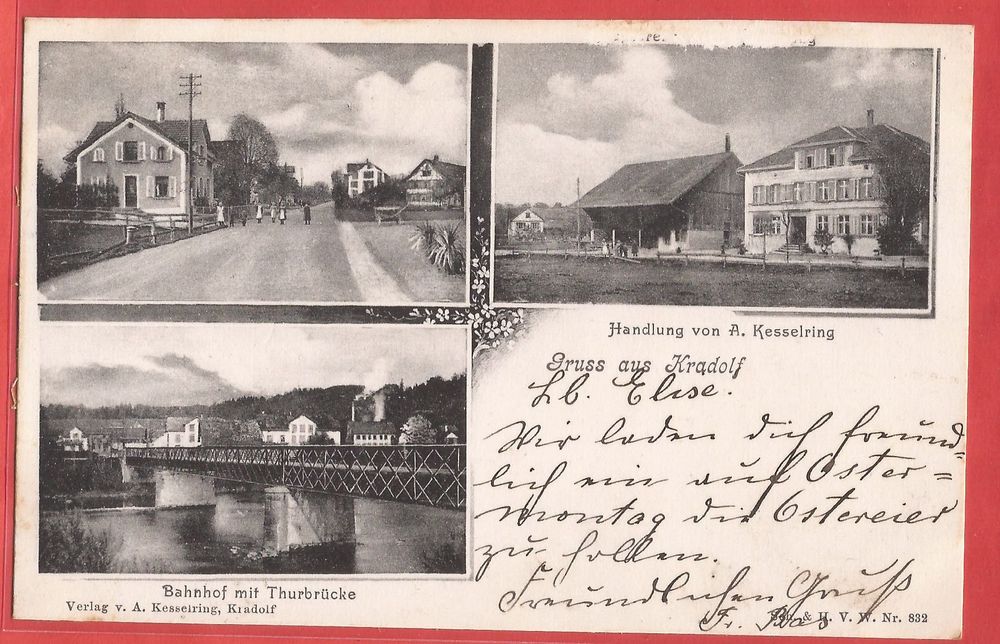 Handlung von A. Kesselring
Gruss aus Kradolf
Lb. Elise.
Wir laden dich freund-
lich ein auf Oster=
montag die Ostereier
zu hollen.
Freundlichen Gruß
Fr.
Bahnhof mit Thurbrücke
Verlag v. A. Kesselring, Kradolf
& H. V. W. Nr. 832